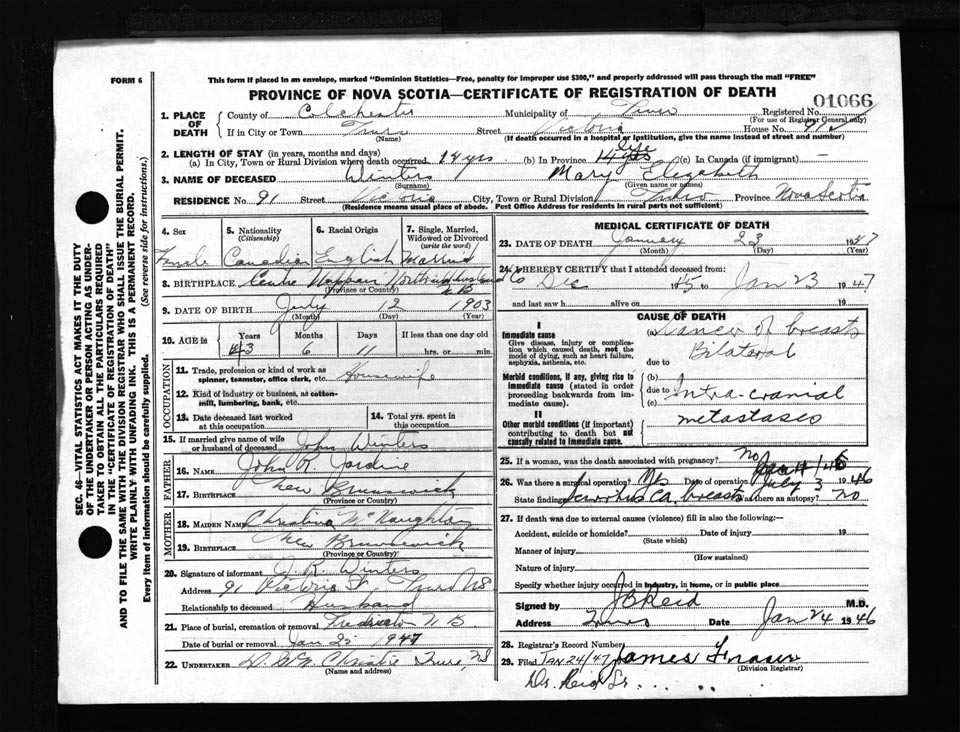 FORM 6
This form if placed in an envelope, marked "Dominion Statistics—Free, penalty for improper use $300," and properly addressed will pass through the mail "FREE"
PROVINCE OF NOVA SCOTIA—CERTIFICATE OF REGISTRATION OF DEATH
01066
1. PLACE OF DEATH
County of Colchester Municipality of Truro Registered No.
(For use of Registrar General only)
If in City or Town Truro Street Victoria House No.
(Name) (If death occurred in a hospital or institution, give the name instead of street and number)
2. LENGTH OF STAY (in years, months and days)
(a) In City, Town or Rural Division where death occurred 14 yrs (b) In Province 14 yrs Life (c) In Canada (if immigrant) —
3. NAME OF DECEASED Winters Mary Elizabeth
(Surname) (Given name or names)
RESIDENCE No. 91 Street Victoria City, Town or Rural Division Truro Province Nova Scotia
(Residence means usual place of abode. Post Office Address for residents in rural parts not sufficient)
4. Sex
Female
5. Nationality
(Citizenship)
Canadian
6. Racial Origin
English
7. Single, Married, Widowed or Divorced
(write the word)
Married
8. BIRTHPLACE Centre Northumberland Co
(Province or Country) N B
9. DATE OF BIRTH July 12 1903
(Month) (Day) (Year)
10. AGE in Years Months Days If less than one day old
43 6 11 hrs. or min.
OCCUPATION
11. Trade, profession or kind of work as spinner, teamster, office clerk, etc. Housewife
12. Kind of industry or business, as cotton-mill, lumbering, bank, etc.
13. Date deceased last worked at this occupation
14. Total yrs. spent in this occupation
15. If married give name of wife or husband of deceased John Winters
FATHER
16. NAME John R. Jardine
17. BIRTHPLACE New Brunswick
(Province or Country)
MOTHER
18. MAIDEN NAME Christina McNaughton
19. BIRTHPLACE New Brunswick
(Province or Country)
20. Signature of informant J. R. Winters
Address 91 Victoria St. Truro NS
Relationship to deceased Husband
21. Place of burial, cremation or removal Fredericton N B
Date of burial or removal Jan 25 1947
22. UNDERTAKER Christie Truro, NS
(Name and address)
MEDICAL CERTIFICATE OF DEATH
23. DATE OF DEATH January 23 1947
(Month) (Day) (Year)
24. I HEREBY CERTIFY that I attended deceased from:
Dec 1945 to Jan 23 1947
and last saw h alive on 19
CAUSE OF DEATH
I
Immediate cause
Give disease, injury or complication which caused death, not the mode of dying, such as heart failure, asphyxia, asthenia, etc.
(a) Cancer of breasts
Bilateral
due to
Morbid conditions, if any, giving rise to immediate cause (stated in order proceeding backwards from immediate cause).
(b)
due to
(c) Intra-cranial
metastases
II
Other morbid conditions (if important) contributing to death but not causally related to immediate cause.
25. If a woman, was the death associated with pregnancy? No
26. Was there a surgical operation? Yes Date of operation July 3 1946
State findings Ca. breasts Was there an autopsy? No
27. If death was due to external causes (violence) fill in also the following:—
Accident, suicide or homicide? Date of injury 19
(State which)
Manner of injury
(How sustained)
Nature of injury
Specify whether injury occurred in industry, in home, or in public place
Signed by J B Reid M.D.
Address Truro Date Jan 24 1946
28. Registrar's Record Number
29. Filed JAN 24/47 James Fraser
(Division Registrar)
Dr. Reid Sr.
SEC. 46—VITAL STATISTICS ACT MAKES IT THE DUTY
OF THE UNDERTAKER OR PERSON ACTING AS UNDERTAKER TO OBTAIN ALL THE PARTICULARS REQUIRED
IN THE "CERTIFICATE OF REGISTRATION OF DEATH"
AND TO FILE THE SAME WITH THE DIVISION REGISTRAR WHO SHALL ISSUE THE BURIAL PERMIT.
WRITE PLAINLY WITH UNFADING INK. THIS IS A PERMANENT RECORD.
Every item of information should be carefully supplied. (See reverse side for instructions.)